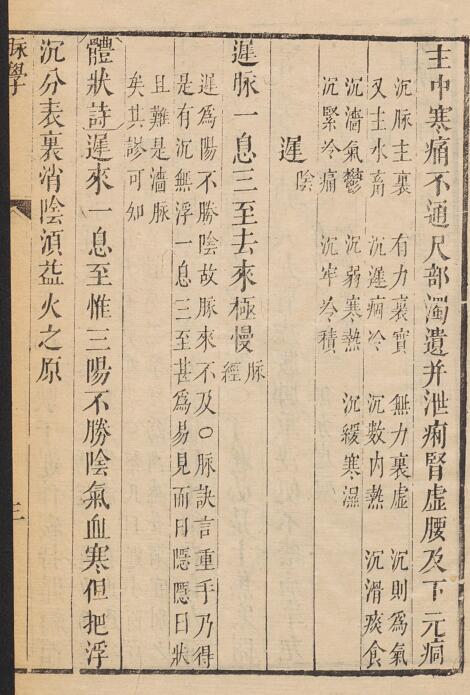 主中寒痛不通尺部濁遺并泄痢腎虛腰及下元痌
沉脉主裏　有力裏實　無力裏虛　沉則爲氣
又主水畜　沉遲痼冷　沉數内熱　沉滑痰食
沉濇氣鬱　沉弱寒熱　沉緩寒濕
沉緊冷痛　沉牢冷積
遲 陰
遲脉一息三至去來極慢 脉經
遲爲陽不勝陰故脉來不及○脉訣言重手乃得
是有沉無浮一息三至甚爲易見而曰隱隱曰狀
且難是濇脉
矣其謬可知
體狀詩遲來一息至惟三陽不勝陰氣血寒但把浮
沉分表裏消陰湏益火之原
脉學
三